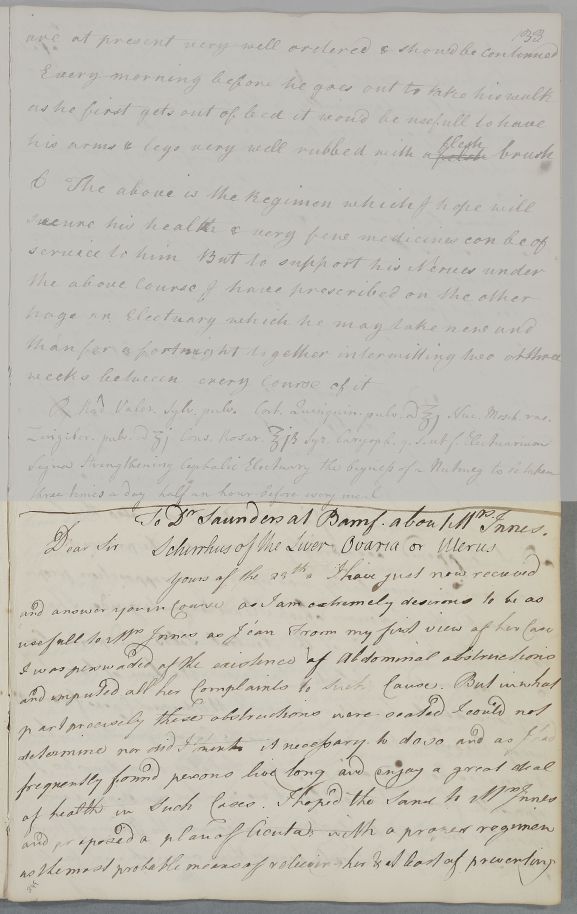 133
are at present very well ordered & should be continued
Every morning before he goes out to take his walk
as he first gets out of bed it woud be usefull to have
his arms & legs very well rubbed with a flesh brush
6 The above is the Regimen which I hope will
secure his health & very few medicines can be of
service to him But to support his Nerves under
the above Course I have prescribed on the other
page an Electuary which he may take now and
than for a fortnight together intermitting two or three
weeks between every Course of it
Rx Rad. Valer. Sylv. pulv. Cort. pulv. Nuc. Mosch.
Zinziber. pulv. Cons. Rosar. Syr. Caryoph. q. s. ut f. Electuarium
Signa Strengthening Cephalic Electuary the bigness of a Nutmeg to be taken
three times a day half an hour before every meal
To Dr Saunders at Bamf. about Mrs Innes.
Dear Sir Schirrhus of the Liver Ovaria or Uterus
Yours of the 22th I have just now received
and answer you in Course as I am extremely desirous to be as
usefull to Mrs Innes as I can From my first view of her Case
I was perswaded of the existence of Abdominal obstructions
and imputed all her Complaints to such Cause. But in what
part precisely these obstructions were seated I could not
determine nor did I think it necessary to do so and as I had
frequently found persons live long and enjoy a great deal
of health in Such Cases. I hoped the Same to Mrs Innes
and proposed a plan of Cicuta with a proper regimen
as the most probable means of relieving her & at least of preventing